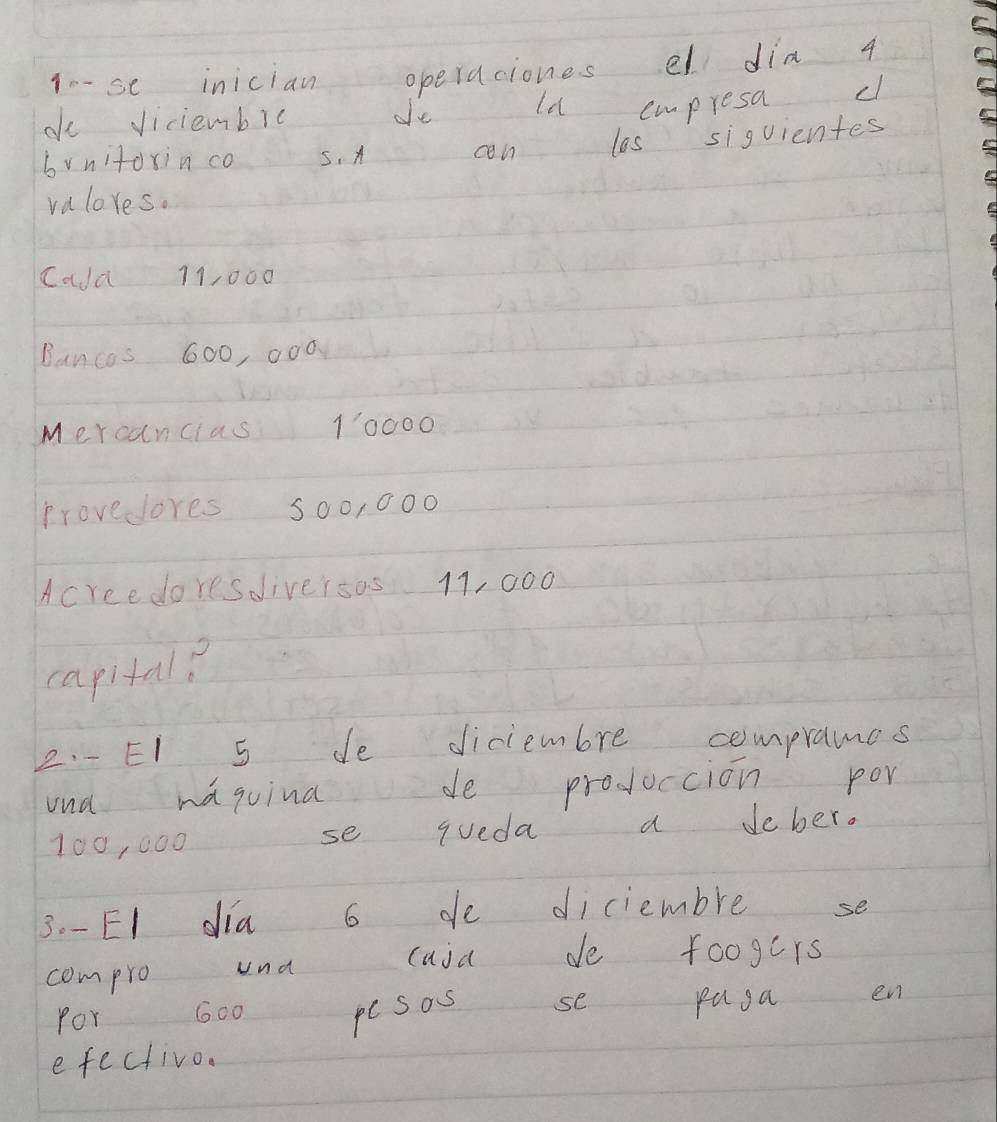 1.- se inician operaciones el día 4
de diciembre de la empresa el
brnitorinco S.A con los siguientes
valores.
Caja 11,000
Bancos 600,000
Mercancias 1'0000
Provedores 500,000
Acreedores diversos 11,000
capital?
2.- El 5 de diciembre compramos
una náquina de producción por
100,000 se queda a deber.
3.- El día 6 de diciembre se
compro una caja de foogers
por 600 pesos se paga en
efectivo.